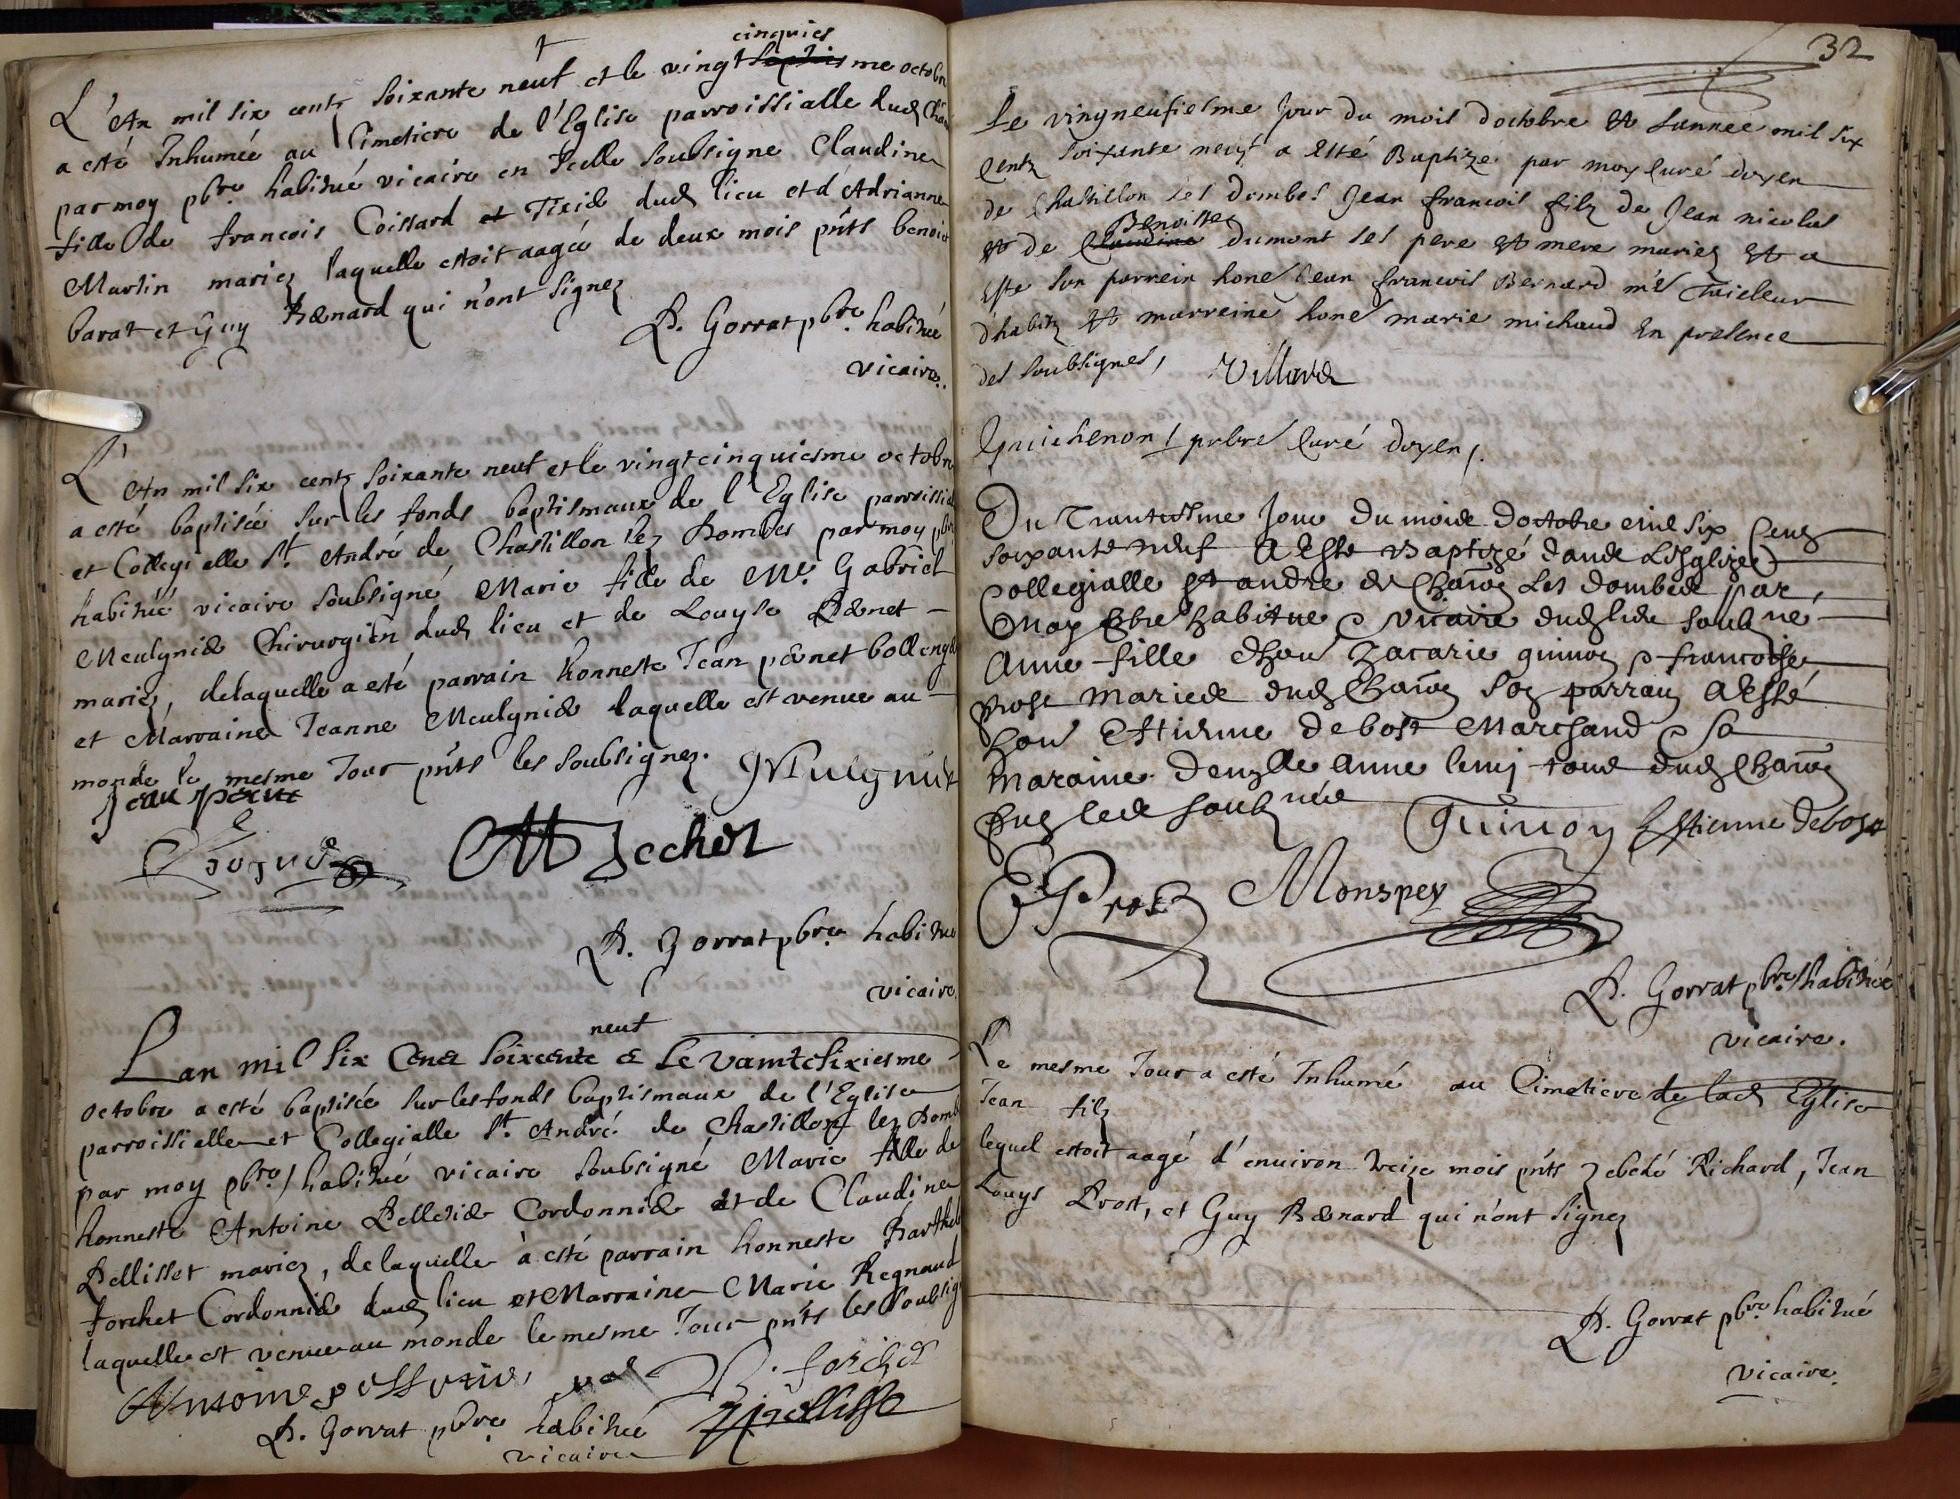 cinquies
L'An mil six centz soixante neuf et le vingt septies me octobre
a esté Inhumée au Cimetiere de l'Eglise parroissialle dud
par moy pbre habitué vicaire en Icelle soubsigné Claudine
fille de francois Coissard et Tixié dud lieu et d'Adrianne
Martin mariez laquelle estoit aagée de deux mois pnts benoit
barat et Guy Bernard qui n'ont signez
P. Gorrat pbre habitué
vicaire.
L'An mil six centz soixante neuf et le vingtcinquiesme octobre
a esté baptisée sur les fonds baptismaux de l'Eglise parroissial
et Collegialle St. André de Chastillon lez Dombes par moy pbre
habitué vicaire soubsigné Marie fille de Me. Gabriel
Meulynié Chirurgien dud lieu et de Louyse Pernet
mariez, de laquelle a esté parrain honneste Jean pernet
et Marraine Jeanne Meulynié laquelle est venue au
monde le mesme Jour pnts les soubsignez.
Jean pernet
P. Gorrat pbre habitué
vicaire.
neuf
Lan mil six Cent soixcente & Le vaintesixiesme
octobre a esté baptisée sur les fonds baptismaux de l'Eglise
parroissielle et Collegialle St. André de Chastillon lez Domb
par moy pbre / habitué vicaire soubsigné Marie fille de
honneste Antoine Pelletié Cordonnié et de Claudine
Pellisset mariez, de laquelle à esté parrain honneste Barthel
forchet Cordonnié dud lieu et Marraine Marie Regnaud
laquelle est venue au monde le mesme Jour pnts les soubsig
Antoine
P. Gorrat pbre habitué
vicaire
32
Le vingneufiesme Jour du mois doctobre & lannee mil six
Centz soixante neuf a esté Baptizé par moy Curé doyen
de Chastillon les dombes Jean francois filz de Jean nicolas
Benoiste
& de Claudine dumont ses pere & mere mariez & a
este son parrein hone Jean francois Bernard me Tailleur
d'habitz & marreine hone marie michaud En presence
des soubsignes,
Villard
Guichenon / prbre Curé doyen /.
Du Trantiesme Jour du moide doctobre mil six Cens
soixante neuf A Este Baptizé dans LEsglize
Collegialle st andre de Les dombes par
Moy pbre habitue & vicaire dud lieu soub né
Anne fille dhon Zacarie guinon & francoise
Prost mariede dud Son parrain A Esté
hon Estienne debost Marchand & Sa
Maraine anne dud
Guinon Estienne debost
Prost Monspey
P. Gorrat pbre / habitué
vicaire.
Le mesme Jour a esté Inhumé au Cimetiere de lad Eglise
Jean filz
lequel estoit aagé d'environ treize mois pnts Zebedé Richard, Jean
Louys Prost, et Guy Bernard qui n'ont signez
P. Gorrat pbre habitué
vicaire.